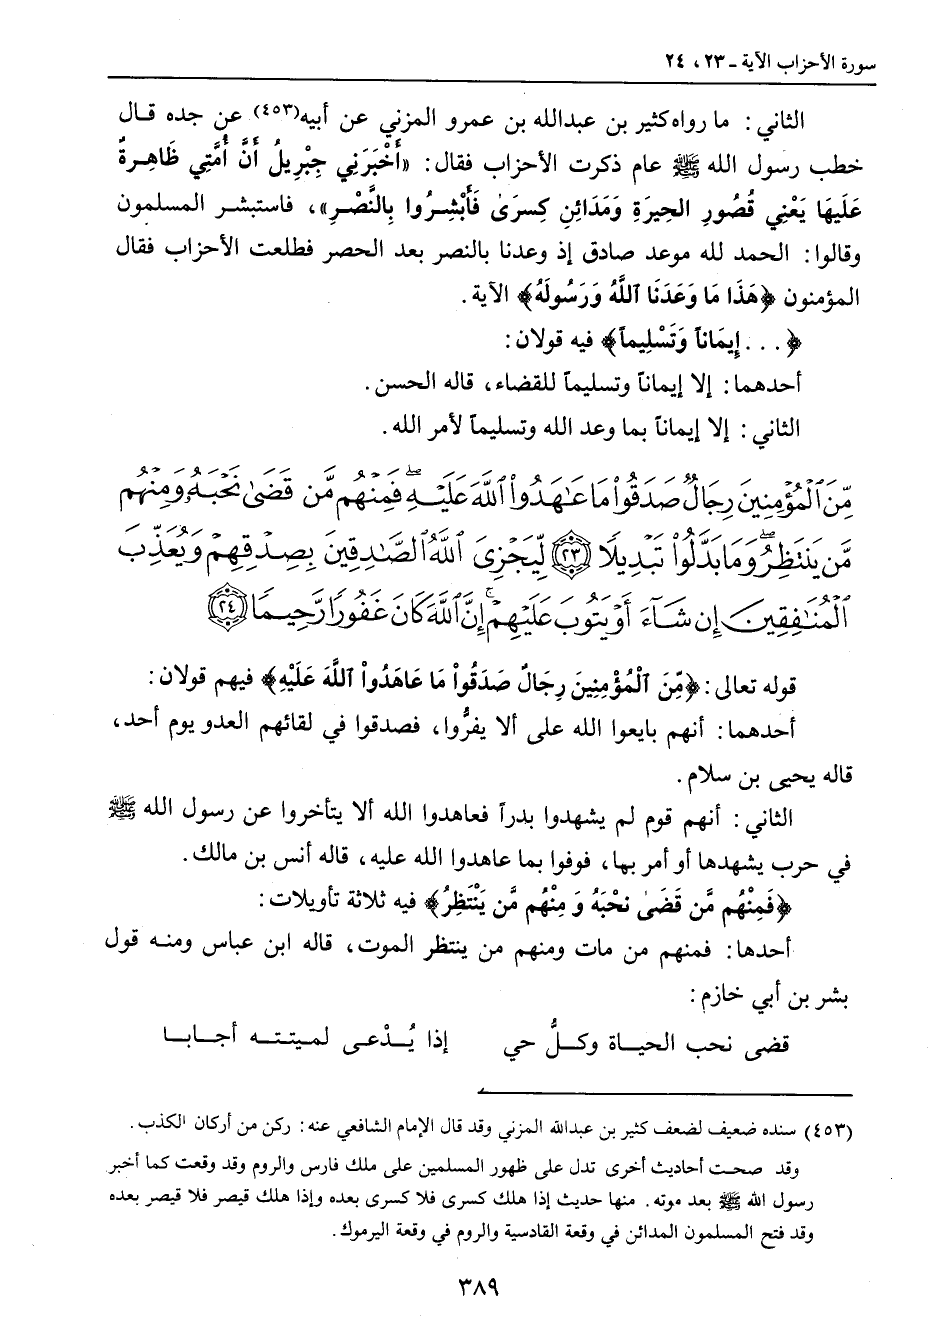 سورة الأحزاب الآية ـ ٢٣ ، ٢٤
الثاني : ما رواه كثير بن عبدالله بن عمرو المزني عن أبيه(٤٥٣) عن جده قال
خطب رسول الله ﷺ عام ذكرت الأحزاب فقال : «أَخْبَرَنِي جِبْرِيلُ أَنَّ أُمَّتِي ظَاهِرةٌ
عَلَيهَا يَعْنِي قُصُورِ الحِيرَةِ وَمَدَائِنِ كِسرَىٰ فَأَبْشِرُوا بِالنَّصْرِ» ، فاستبشر المسلمون
وقالوا : الحمد لله موعد صادق إذ وعدنا بالنصر بعد الحصر فطلعت الأحزاب فقال
المؤمنون ﴿هَذَا مَا وَعَدَنَا ٱللَّهُ وَرَسُولَهُ﴾ الآية .
﴿ . . . إِيمَاناً وَتَسْلِيماً﴾ فيه قولان :
أحدهما : إلا إيماناً وتسليماً للقضاء ، قاله الحسن .
الثاني : إلا إيماناً بما وعد الله وتسليماً لأمر الله .
مِّنَ ٱلْمُؤْمِنِينَ رِجَالٌ صَدَقُوا۟ مَا عَـٰهَدُوا۟ ٱللَّهَ عَلَيْهِ ۖ فَمِنْهُم مَّن قَضَىٰ نَحْبَهُۥ وَمِنْهُم
مَّن يَنتَظِرُ ۖ وَمَا بَدَّلُوا۟ تَبْدِيلًا ٢٣ لِّيَجْزِىَ ٱللَّهُ ٱلصَّـٰدِقِينَ بِصِدْقِهِمْ وَيُعَذِّبَ
ٱلْمُنَـٰفِقِينَ إِن شَآءَ أَوْ يَتُوبَ عَلَيْهِمْ ۚ إِنَّ ٱللَّهَ كَانَ غَفُورًا رَّحِيمًا ٢٤
قوله تعالى : ﴿مِّنَ ٱلْمُؤْمِنِينَ رِجَالٌ صَدَقُواْ مَا عَاهَدُواْ ٱللَّهَ عَلَيْهِ﴾ فيهم قولان :
أحدهما : أنهم بايعوا الله على ألا يفرُّوا ، فصدقوا في لقائهم العدو يوم أحد ،
قاله يحيى بن سلام .
الثاني : أنهم قوم لم يشهدوا بدراً فعاهدوا الله ألا يتأخروا عن رسول الله ﷺ
في حرب يشهدها أو أمر بها ، فوفوا بما عاهدوا الله عليه ، قاله أنس بن مالك .
﴿فَمِنْهُم مَّن قَضَىٰ نَحْبَهُ وَ مِنْهُم مَّن يَنْتَظِرُ﴾ فيه ثلاثة تأويلات :
أحدها : فمنهم من مات ومنهم من ينتظر الموت ، قاله ابن عباس ومنه قول
بشر بن أبي خازم :
قضى نحب الحياة وكلُّ حي إذا يُدْعى لميتته أجابا
(٤٥٣) سنده ضعيف لضعف كثير بن عبدالله المزني وقد قال الإمام الشافعي عنه : ركن من أركان الكذب .
وقد صحت أحاديث أخرى تدل على ظهور المسلمين على ملك فارس والروم وقد وقعت كما أخبر
رسول الله ﷺ بعد موته . منها حديث إذا هلك كسرى فلا كسرى بعده وإذا هلك قيصر فلا قيصر بعده
وقد فتح المسلمون المدائن في وقعة القادسية والروم في وقعة اليرموك .
٣٨٩